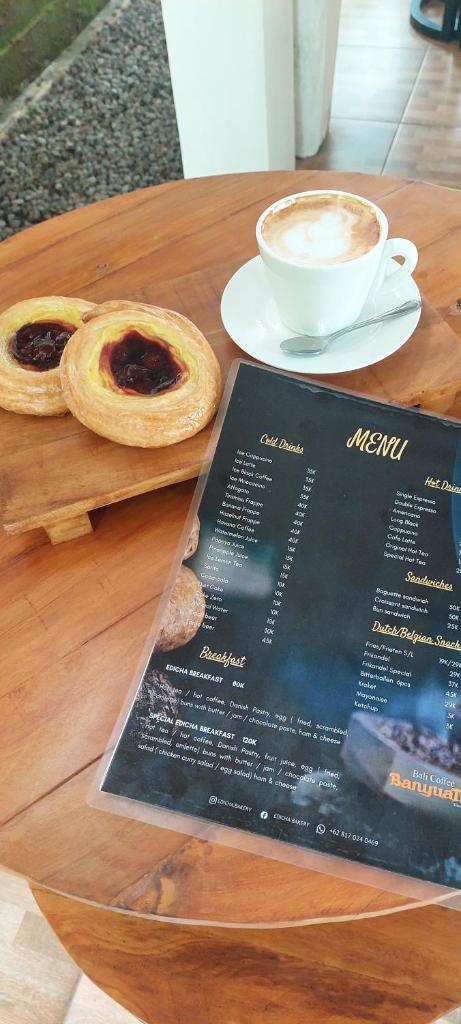 MENU
Cold Drinks
Ice Cappucino 35K
Ice Latte 35K
Ice Black Coffee
Ice Macacinno
Affogato
Tiramisu Frappe 40K
Banana Frappe 40K
Hazelnut Frappe
Havana Coffee
Watermelon Juice
Papaya Juice 15K
Pineapple Juice 15K
Ice Lemon Tea
Sprite 10K
Coca-cola 10K
Diet Coke 10K
Coke Zero 10K
Water 10K
beer
beer 45K
Hot Drin
Single Espresso
Double Espresso
Americano
Long Black
Cappucino
Cafe Latte
Original Hot Tea
Special Hot Tea
Sandwiches
Baguette sandwich 50K
Croissant sandwich 50K
Bun sandwich 25K
Dutch/Belgian Snack
Fries/Frieten S/L 19K/29K
Frikandel 29K
Frikandel Special 37K
Bitterballen 6pcs 45K
Kroket 29K
Mayonaise 5K
Ketchup 5K
Breakfast
EDICHA BREAKFAST 80K
tea / hot coffee, Danish Pastry, egg ( fried, scrambled,
buns with butter / jam / chocolate paste, ham & cheese
SPECIAL EDICHA BREAKFAST 120K
Hot tea / hot coffee, Danish Pastry, fruit juice, egg ( fried,
scrambled, omlette) buns with butter / jam / chocolate paste,
salad ( chicken curry salad / egg salad) ham & cheese
Bali Coffee
Banyuat
EDICHA.BAKERY
EDICHA BAKERY
+62 817 024 0469